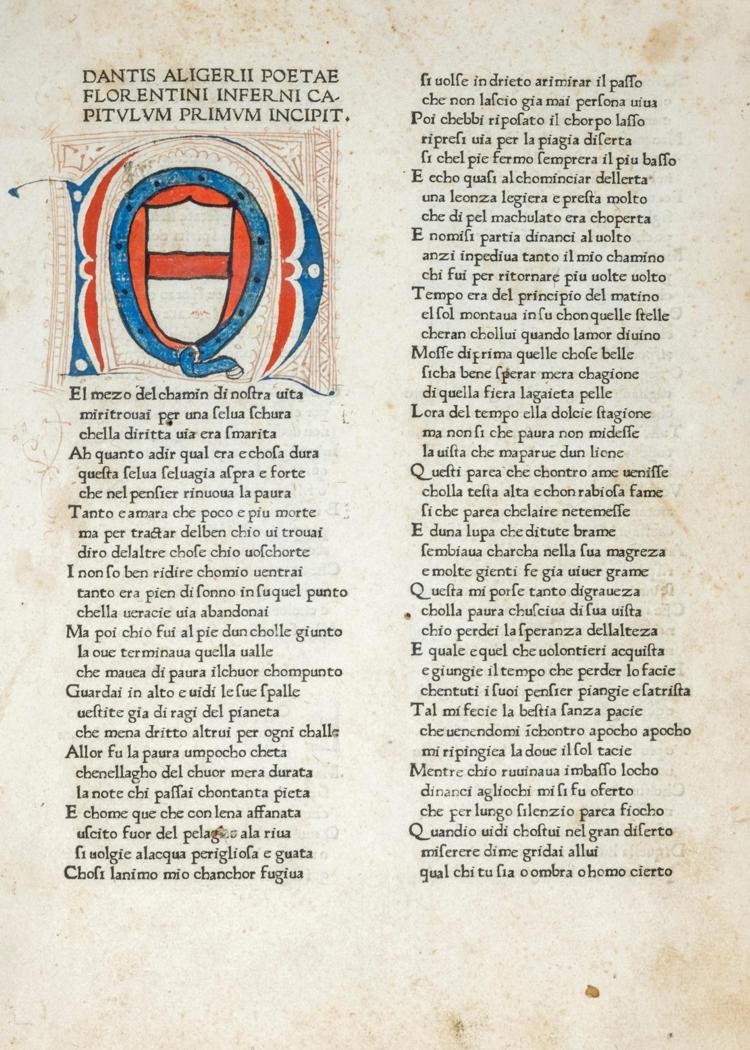 DANTIS ALIGERII POETAE
FLORENTINI INFERNI CA-
PITVLVM PRIMVM INCIPIT.
El mezo delchamin di noſtra uita
miritrouai per una ſelua ſchura
chella diritta uia era ſmarita
Ah quanto adir qual era echoſa dura
queſta ſelua ſeluagia aſpra e forte
che nel penſier rinuoua la paura
Tanto e amara che poco e piu morte
ma per tractar delben chio ui trouai
diro delaltre choſe chio uoſchorte
I non ſo ben ridire chomio uentrai
tanto era pien di ſonno in ſu quel punto
chella ueracie uia abandonai
Ma poi chio fui al pie dun cholle giunto
la oue terminaua quella ualle
che mauea di paura ilchuor chompunto
Guardai in alto e uidi le ſue ſpalle
ueſtite gia di ragi del pianeta
che mena dritto altrui per ogni challe
Allor fu la paura umpocho cheta
chenellagho del chuor mera durata
la note chi paſſai chontanta pieta
E chome que che con lena affanata
uſcito fuor del pelago ala riua
ſi uolgie alacqua periglioſa e guata
Choſi lanimo mio chanchor fugiua
ſi uolſe indrieto arimirar il paſſo
che non laſcio gia mai perſona uiua
Poi chebbi ripoſato il chorpo laſſo
ripreſi uia per la piagia diſerta
ſi chel pie fermo ſemprera il piu baſſo
E echo quaſi alchominciar dellerta
una leonza legiera e preſta molto
che di pel machulato era choperta
E nomiſi partia dinanci al uolto
anzi inpediua tanto il mio chamino
chi fui per ritornare piu uolte uolto
Tempo era del principio del matino
el ſol montaua in ſu chon quelle ſtelle
cheran chollui quando lamor diuino
Moſſe diprima quelle choſe belle
ſicha bene ſperar mera chagione
di quella fiera lagaieta pelle
Lora del tempo ella dolcie ſtagione
ma non ſi che paura non mideſſe
la uiſta che maparue dun lione
Queſti parea che chontro ame ueniſſe
cholla teſta alta e chon rabioſa fame
ſi che parea chelaire netemeſſe
E duna lupa che ditute brame
ſembiaua charcha nella ſua magreza
e molte gienti fe gia uiuer grame
Queſta mi porſe tanto digraueza
cholla paura chuſciua di ſua uiſta
chio perdei la ſperanza dellalteza
E quale e quel che uolontieri acquiſta
e giungie il tempo che perder lo facie
chentuti i ſuoi penſier piangie e ſatriſta
Tal mi fecie la beſtia ſanza pacie
che uenendomi īchontro apocho apocho
mi ripingiea la doue il ſol tacie
Mentre chio ruuinaua imbaſſo locho
dinanci agliochi mi ſi fu oferto
che per lungo ſilenzio parea fiocho
Quandio uidi choſtui nel gran diſerto
miſerere dime gridai allui
qual chi tu ſia o ombra o homo cierto